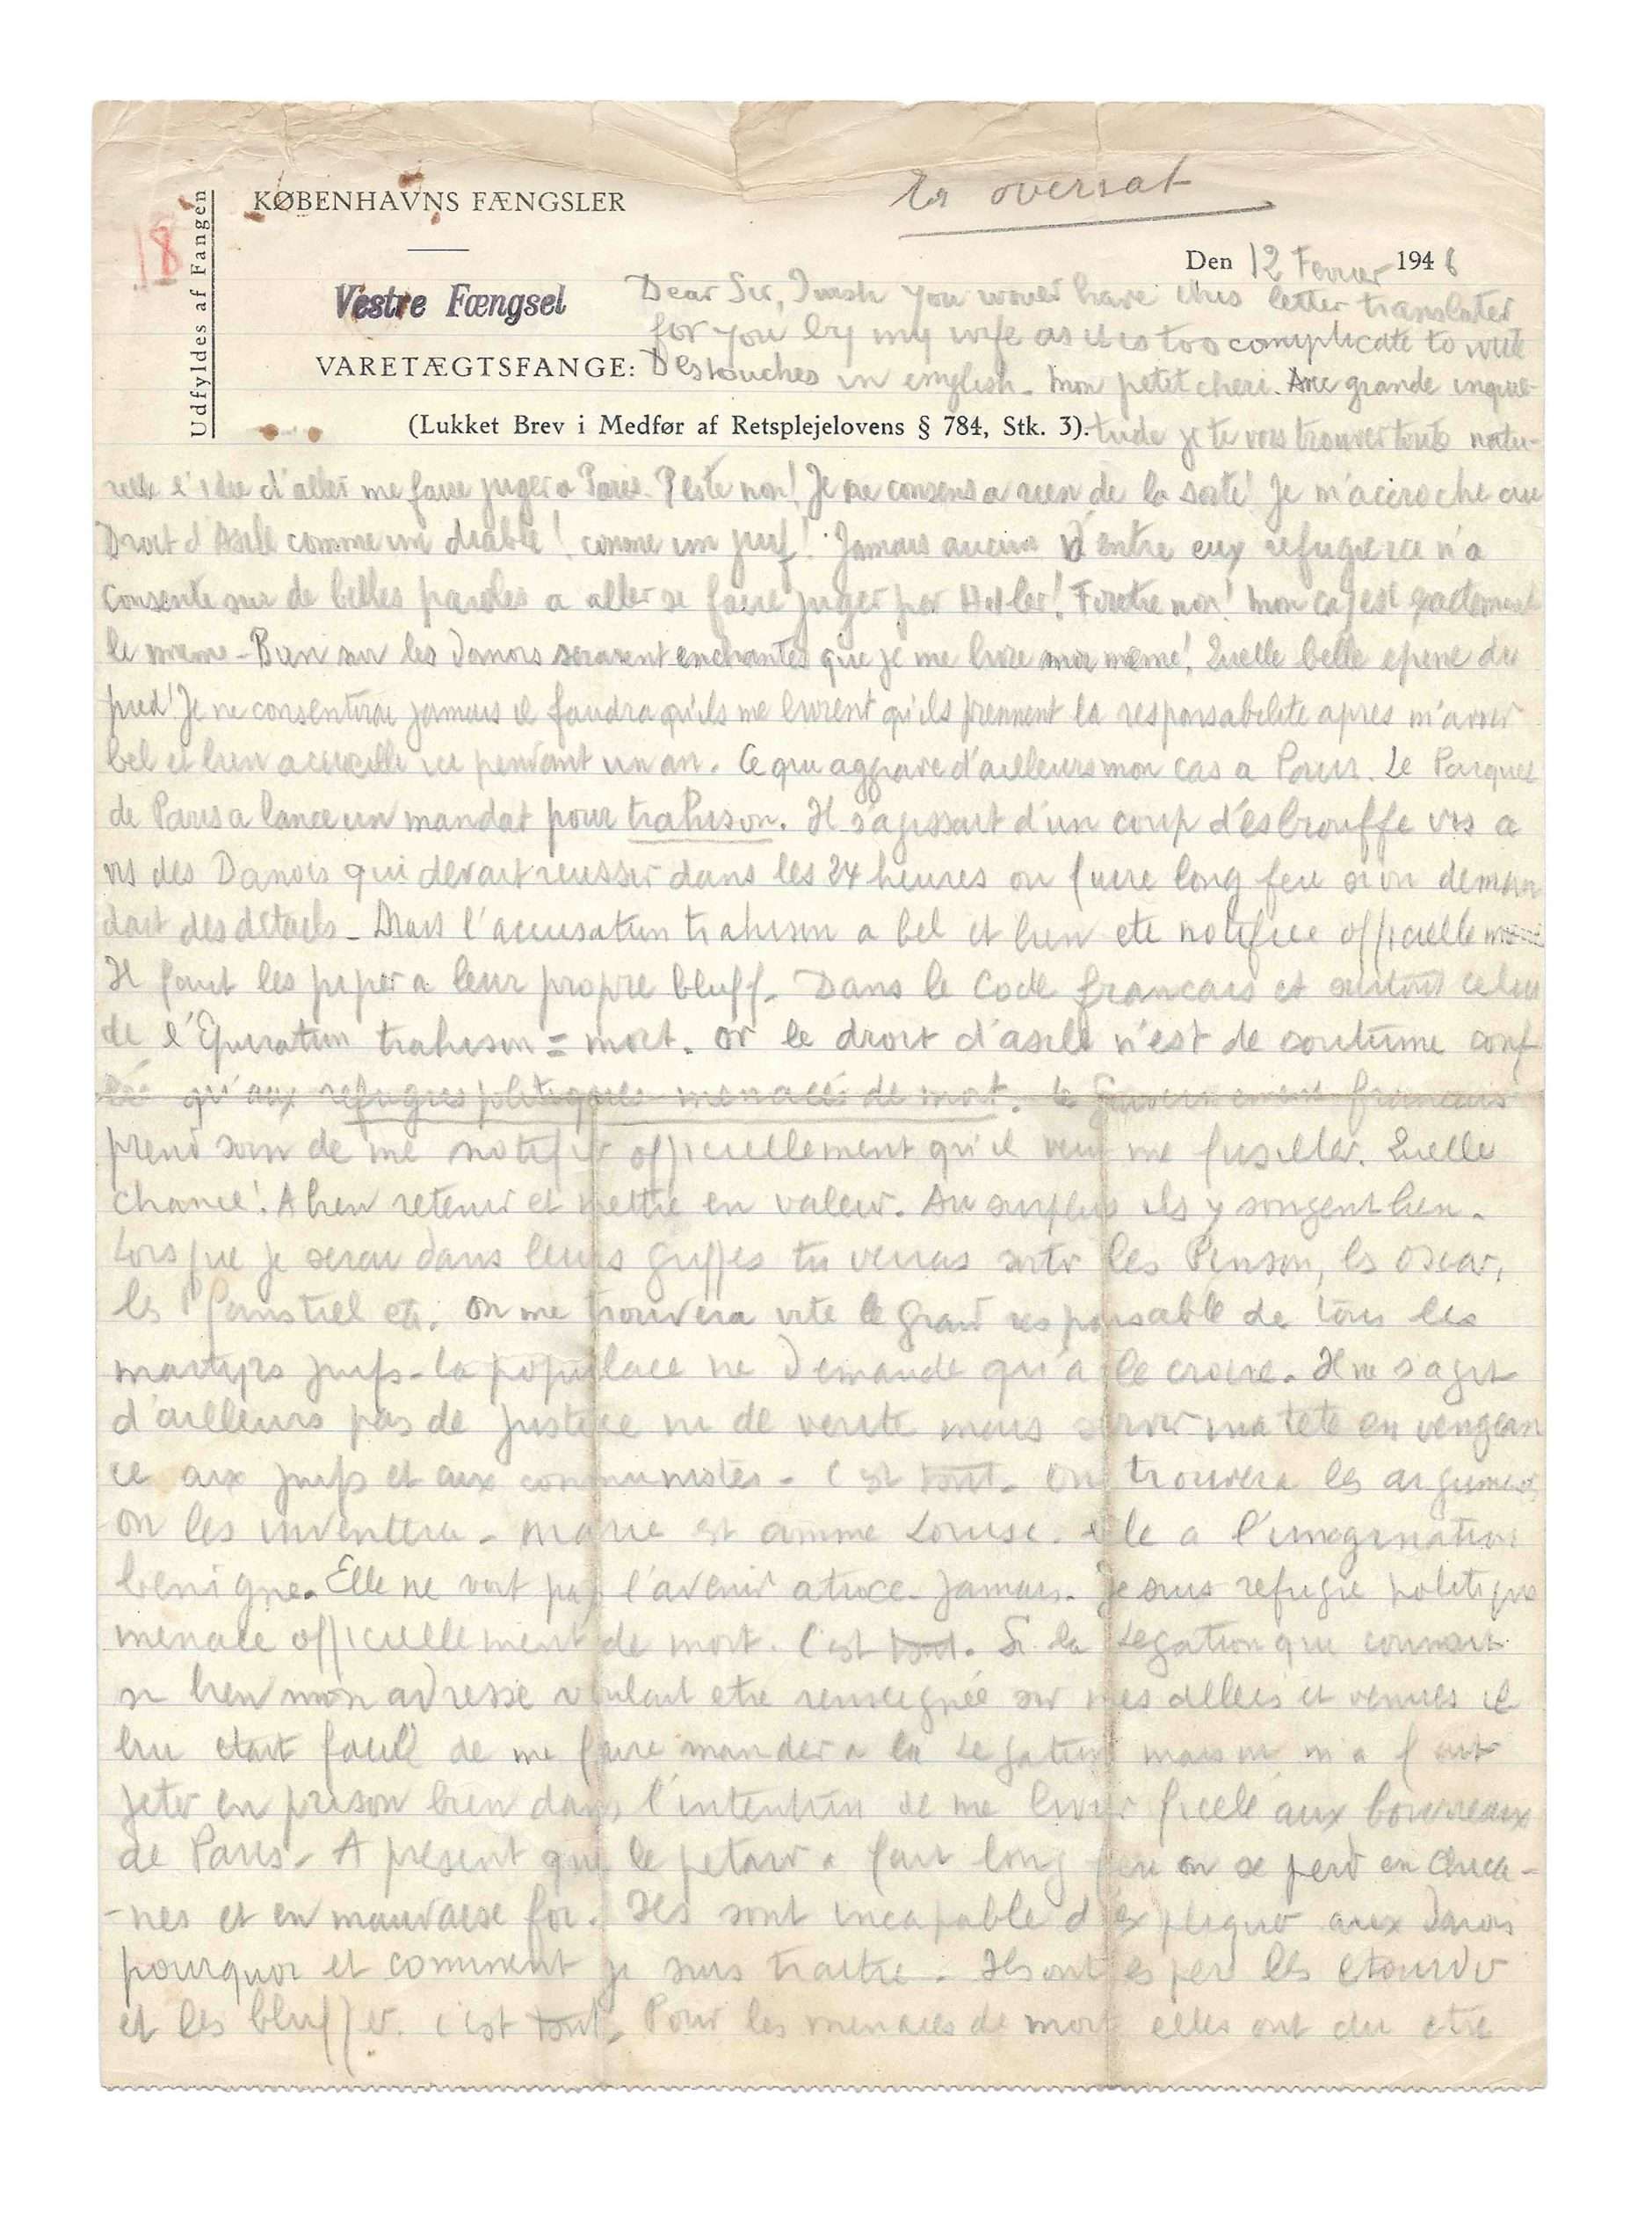 18
Udfyldes af Fangen
KØBENHAVNS FÆNGSLER
Er oversat
Den 12 Fevrier 1946
Vestre Fængsel
Dear Sir, I wish you would have this letter translated
for you by my wife as it is too complicate to write
VARETÆGTSFANGE: Destouches in english. Mon petit cheri. Avec grande inquie-
(Lukket Brev i Medfør af Retsplejelovens § 784, Stk. 3). tude je te vois trouver toute natu-
relle l'idee d'aller me faire juger a Paris. Peste non! Je ne consens a rien de la sorte! Je m'accroche au
Droit d'Asile comme un diable! comme un juif! Jamais aucun d'entre eux refugie ici n'a
consenti sur de belles paroles a aller se faire juger par Hitler! Foutre non! mon cas est exactement
le meme - Bien sur les Danois seraient enchantes que je me livre moi meme! Quelle belle epine du
pied! Je ne consentirai jamais il faudra qu'ils me livrent qu'ils prennent la responsabilite apres m'avoir
bel et bien accueilli ici pendant un an. Ce qui aggrave d'ailleurs mon cas a Paris. Le Parquet
de Paris a lance un mandat pour trahison. Il s'agissait d'un coup d'esbrouffe vis a
vis des Danois qui devait reussir dans les 24 heures ou faire long feu si on deman
dait des details - Mais l'accusation trahison a bel et bien ete notifiee officiellement
Il faut les piper a leur propre bluff - Dans le Code francais et surtout celui
de l'Epuration trahison = mort. Or le droit d'asile n'est de coutume conf
éré qu'aux refugies politiques menacés de mort. Le Gouvernement francais
prend soin de me notifier officiellement qu'il veut me fusiller. Quelle
chance! A bien retenir et mettre en valeur. Au surplus ils y songent bien.
Lorsque je serai dans leurs griffes tu verras sortir les Pinson, les Oscar,
les etc. On me trouvera vite le grand responsable de tous les
martyrs juifs - la populace ne demande qu'a le croire. Il ne s'agit
d'ailleurs pas de justice ni de verite mais servir ma tete en vengean
ce aux juifs et aux communistes - C'est tout. On trouvera les arguments
on les inventera - Marie est comme Louise. elle a l'imagination
benigne. Elle ne voit pas l'avenir atroce - Jamais. Je suis refugie politique
menace officiellement de mort. C'est tout. Si la Legation qui connait
si bien mon adresse voulait etre renseignée sur mes allees et venues il
lui etait facile de me faire mander a la Legation mais on m'a fait
jeter en prison bien dans l'intention de me livrer ficelé aux bourreaux
de Paris - A present que le petard a fait long feu on se perd en chica-
-nes et en mauvaise foi. Ils sont incapable d'expliquer aux Danois
pourquoi et comment je suis traitre. Ils ont espere les etourdir
et les bluffer. C'est tout. Pour les menaces de mort elles ont du etre